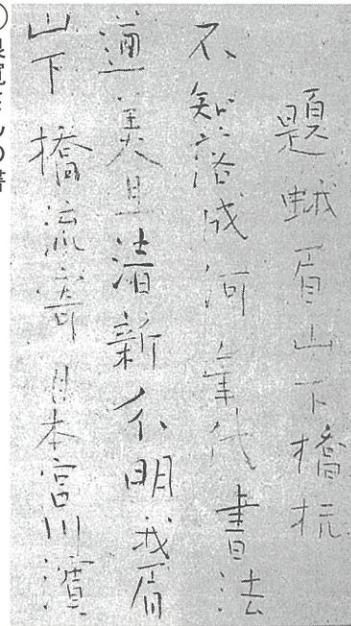 題蛾眉山下橋杭
不知落成何年代書法
遒美且清新分明我眉
山下橋流寄日本宮川濱